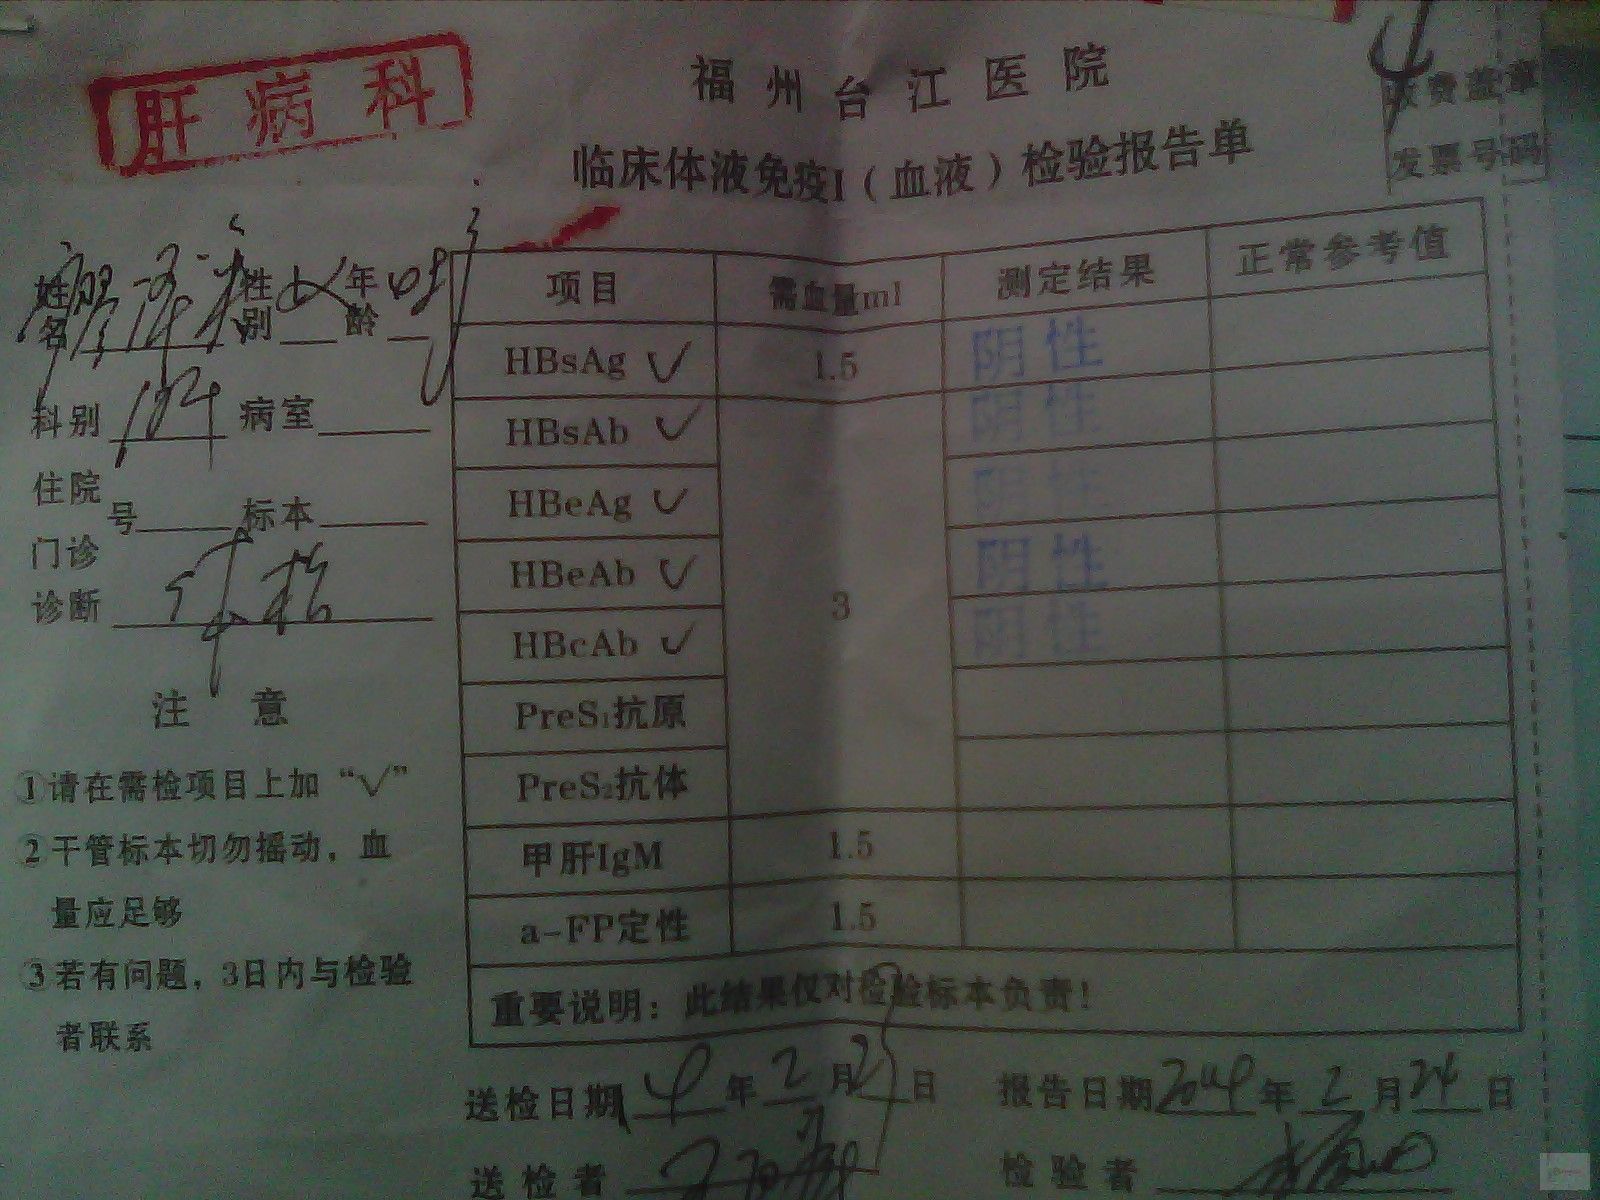 肝病科
福州台江医院
临床体液免疫I（血液）检验报告单
收费盖章
发票号码
姓名 性别 女 年龄
科别 病室
住院
号 标本
门诊
诊断
注 意
①请在需检项目上加“√”
②干管标本切勿摇动，血
量应足够
③若有问题，3日内与检验
者联系
项目 需血量ml 测定结果 正常参考值
HBsAg √ 1.5 阴性
HBsAb √ 阴性
HBeAg √ 阴性
HBeAb √ 3 阴性
HBcAb √ 阴性
PreS₁抗原
PreS₂抗体
甲肝IgM 1.5
a-FP定性 1.5
重要说明：此结果仅对检验标本负责！
送检日期 年 2 月 日 报告日期 年 2 月 24 日
送检者 检验者